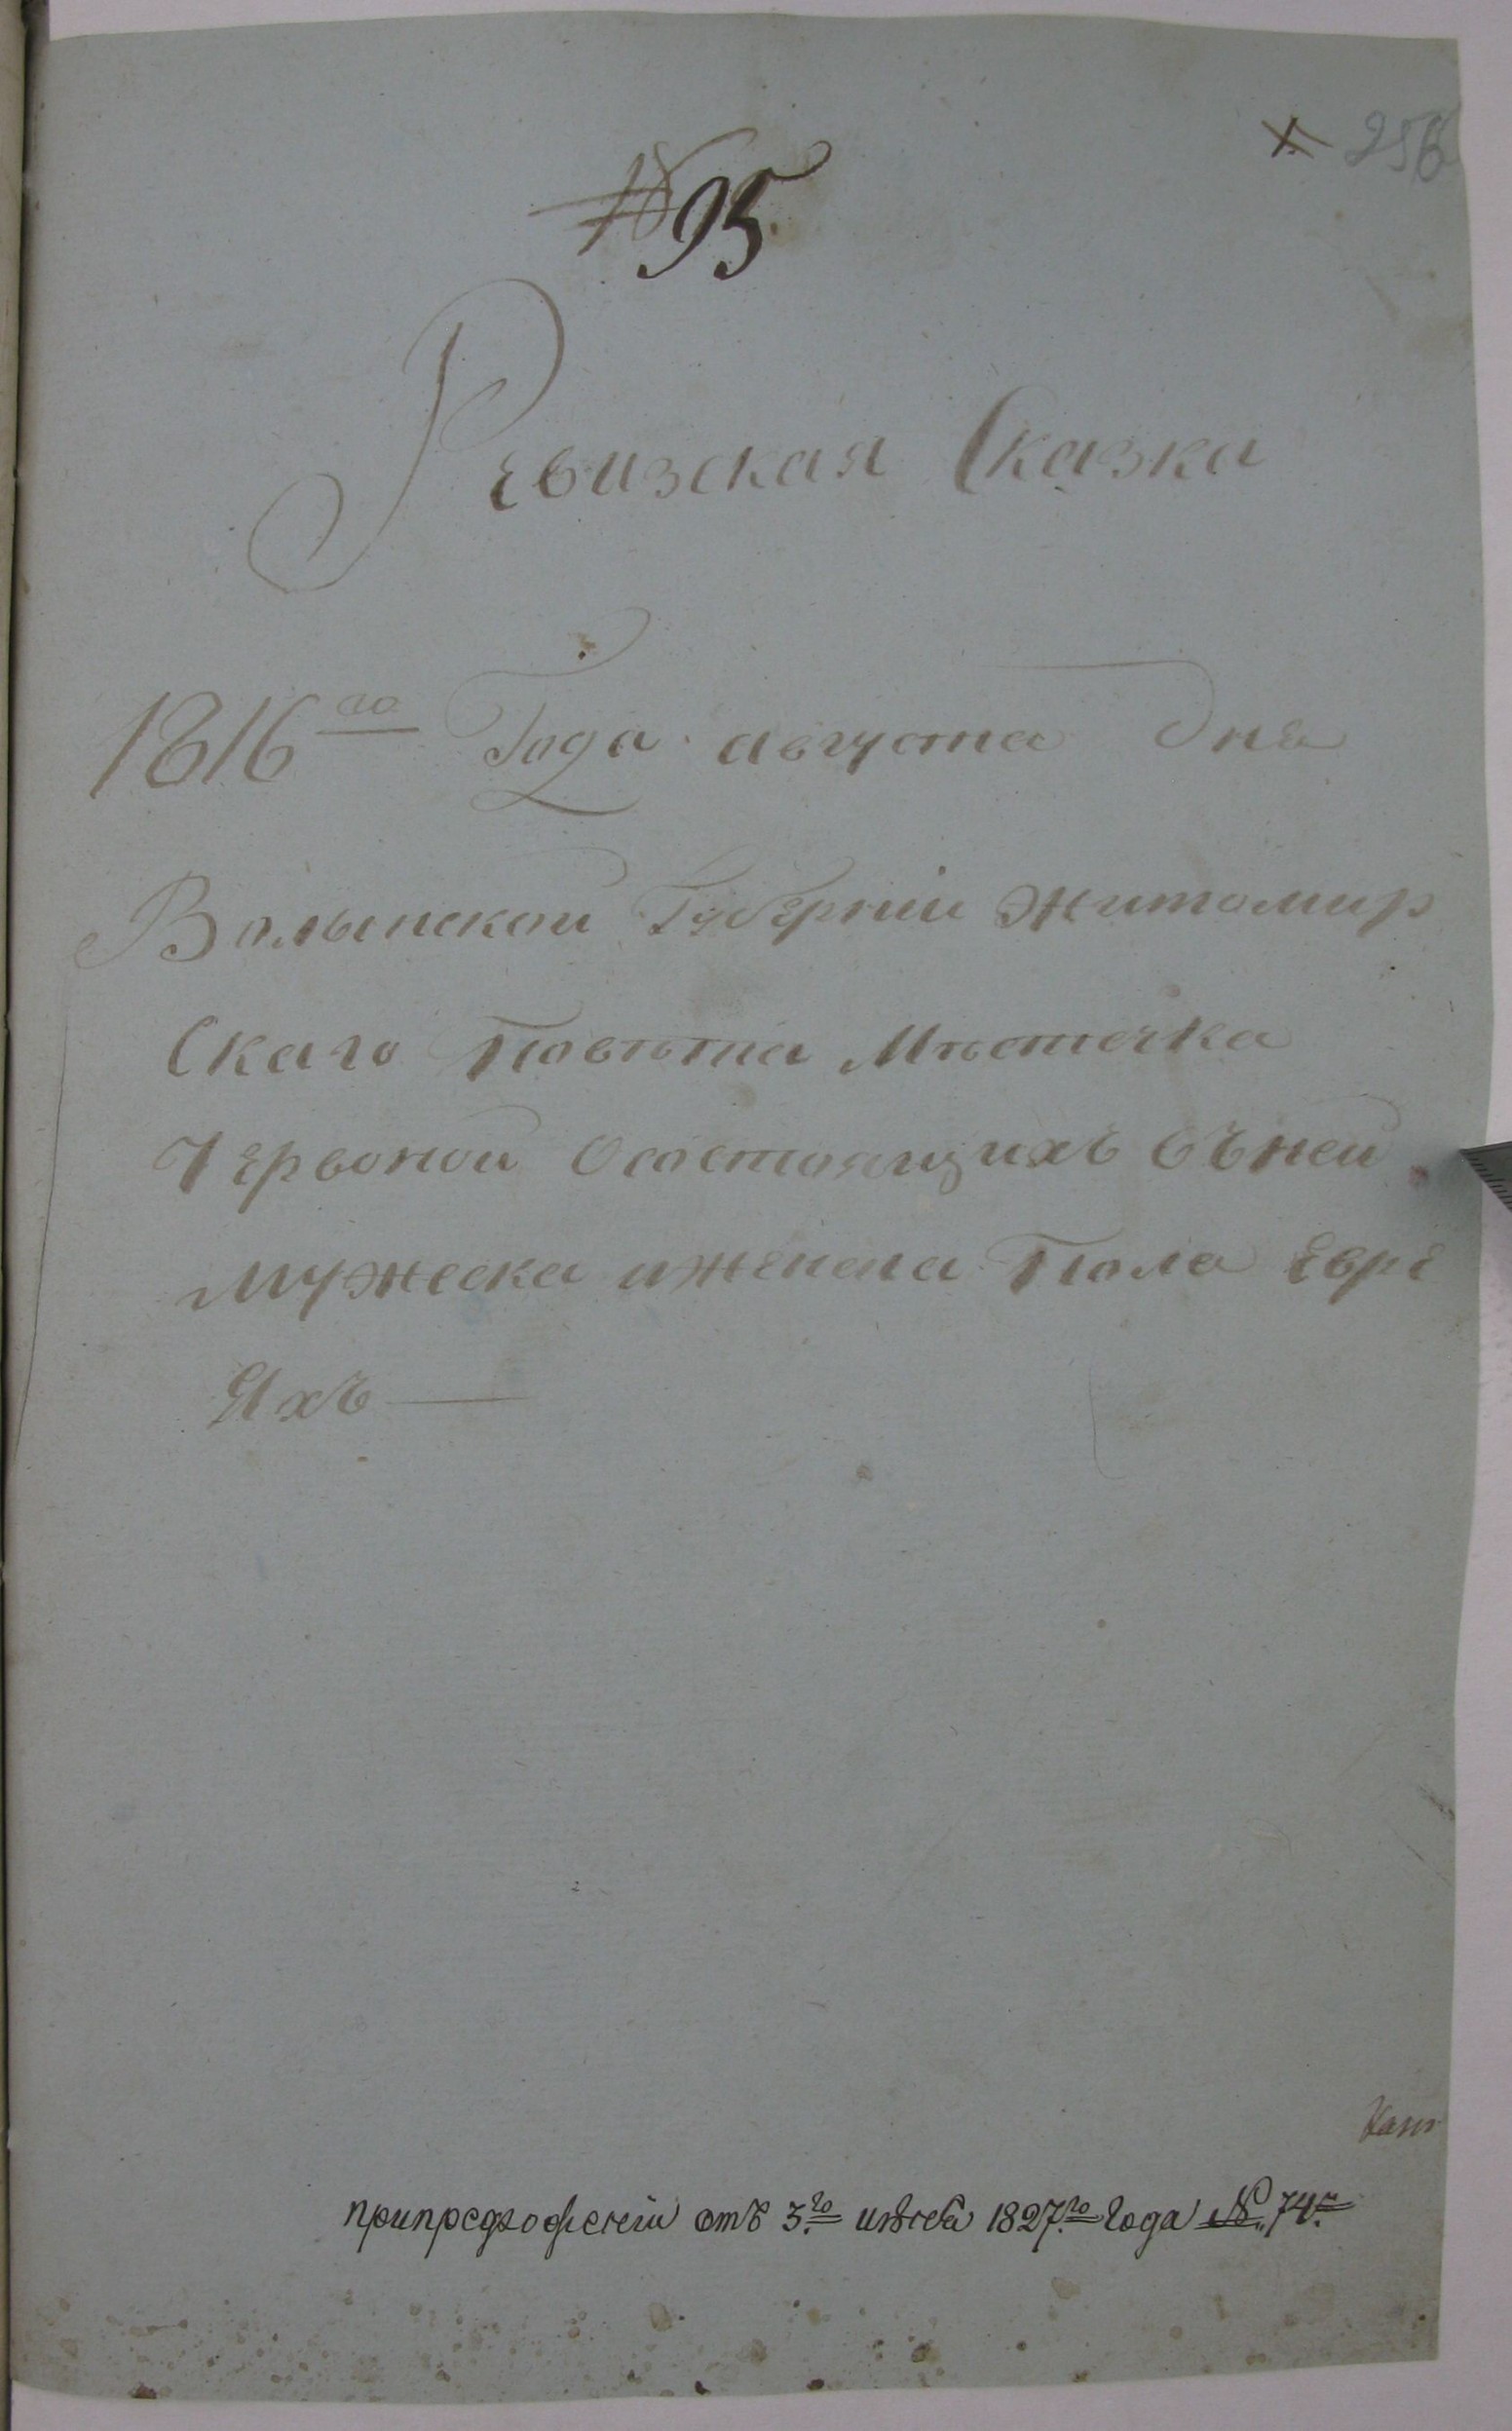 256
95
Ревизская Сказка
1816го Года августа Дня
Волынской Губернии Житомир
Скаго Повѣта Мѣстечка
Червоной Осостоящихъ въ ней
мужеска и женска Пола Евре
Яхъ —
припредложении отъ 3го 1827го года № 74м